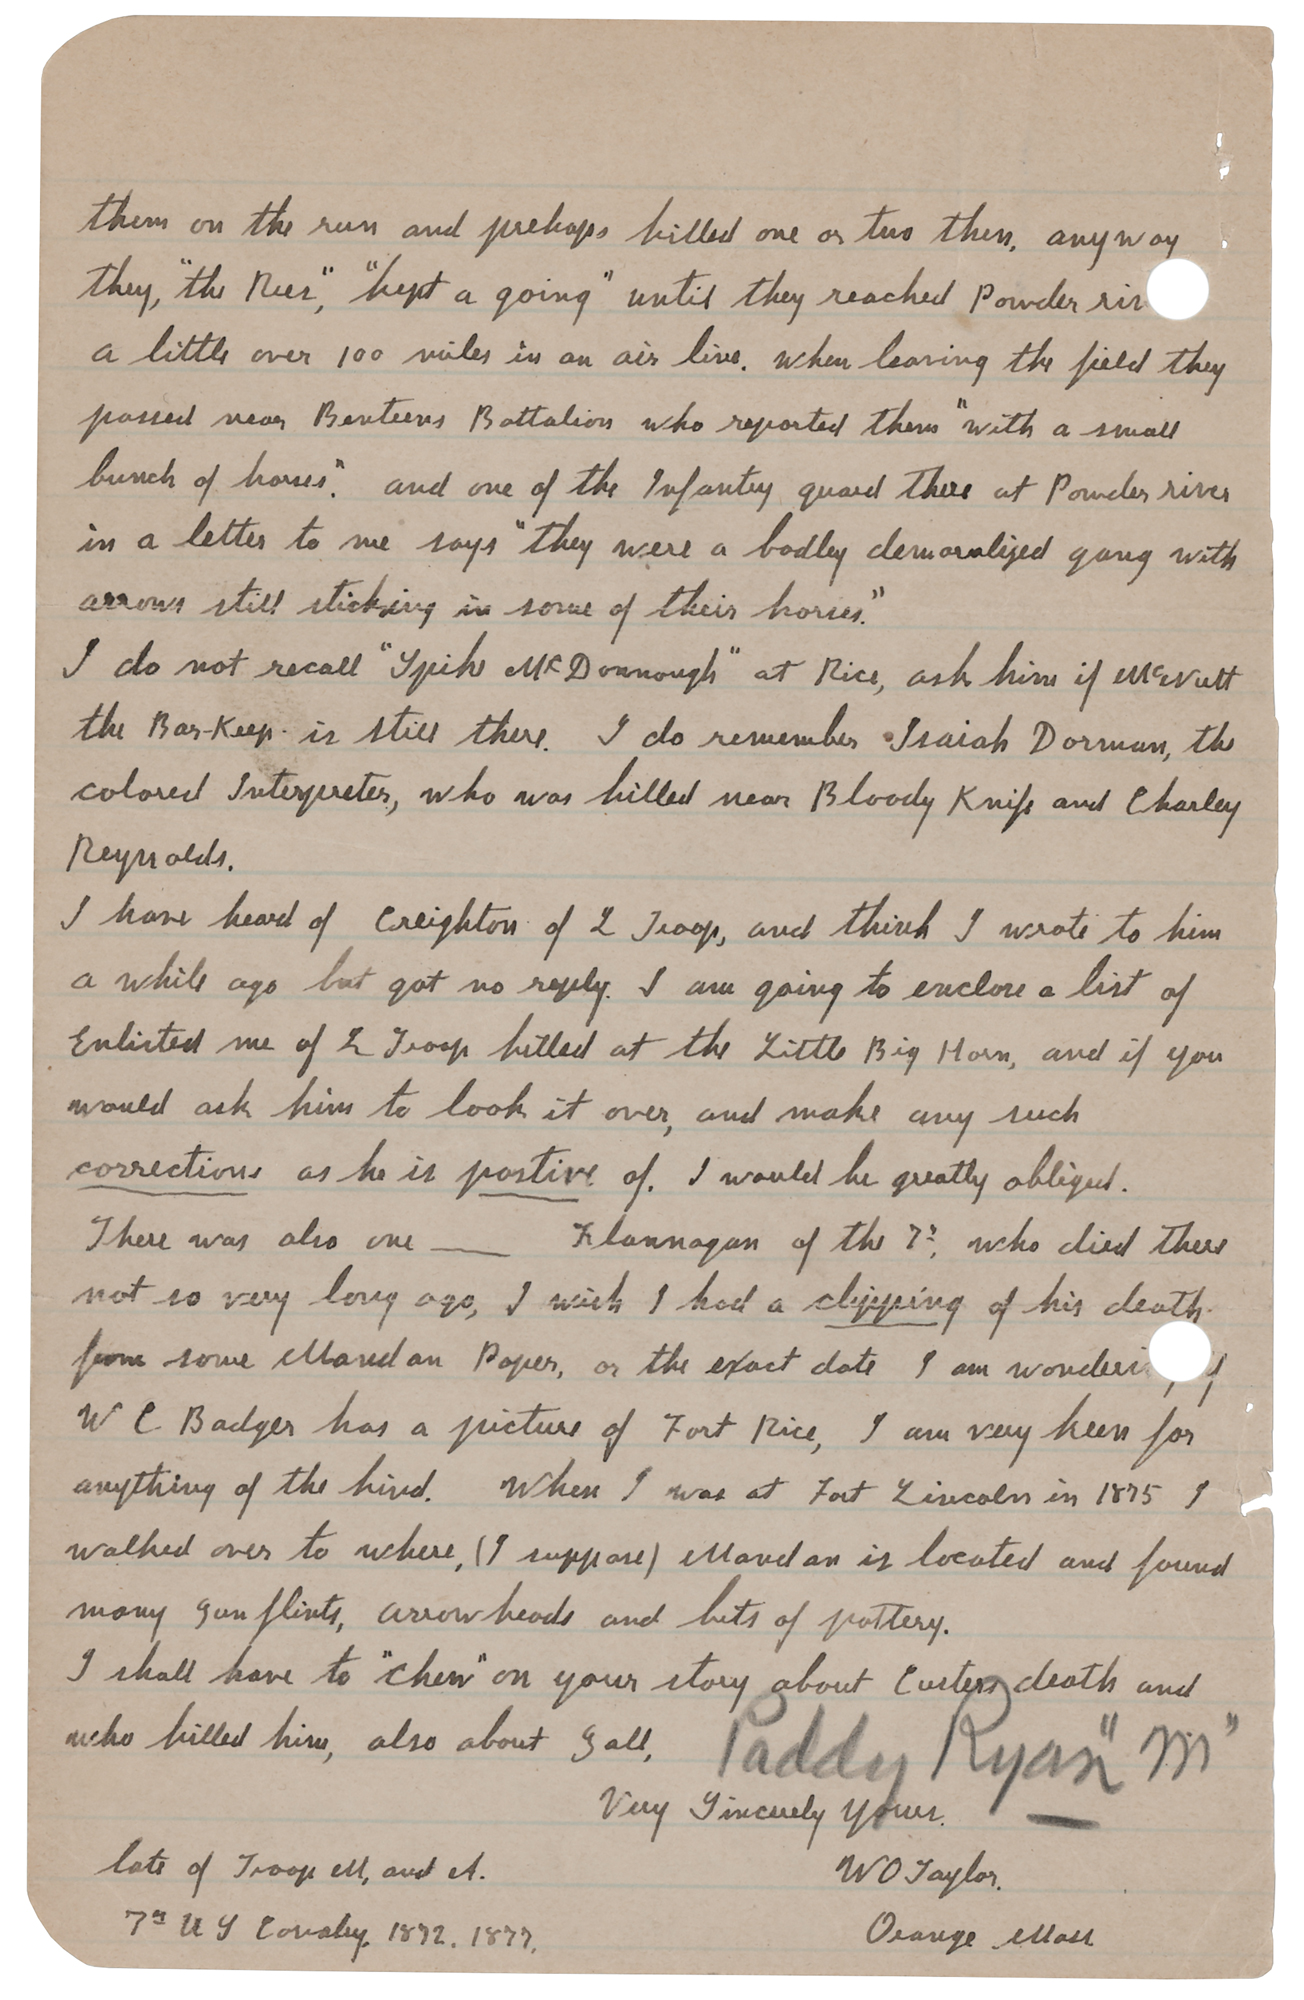 them on the run and prehaps killed one or two then. anyway
they, "the Rees", "kept a going" until they reached Powder riv
a little over 100 miles in an air line. when leaving the field they
passed near Benteens Battalion who reported them "with a small
bunch of horses". and one of the Infantry guard there at Powder river
in a letter to me says "they were a badley demoralized gang with
arrows still sticking in some of their horses."
I do not recall "Spike McDonnough" at Rice, ask him if McNutt
the Bar-Keep is still there. I do remember Isaiah Dorman, the
colored Interpreter, who was killed near Bloody Knife and Charley
Reynolds.
I have heard of Creighton of L Troop, and think I wrote to him
a while ago but got no reply. I am going to enclose a list of
Enlisted me of L Troop killed at the Little Big Horn, and if you
would ask him to look it over, and make any such
corrections as he is postive of. I would be greatly obliged.
There was also one ___ Flannagan of the 7th, who died there
not so very long ago, I wish I had a clipping of his death
from some Mandan Paper, or the exact date I am wonderi if
W C Badger has a picture of Fort Rice, I am very keen for
anything of the kind. When I was at Fort Lincoln in 1875 I
walked over to where, (I suppose) Mandan is located and found
many gun flints, arrow heads and bits of pottery.
I shall have to "chew" on your story about Custers death and
who killed him, also about Gall,
Paddy Ryan "M"
Very Sincerely Yours.
late of Troop M, and A.
W O Taylor.
7th U S Cavalry. 1872. 1877.
Orange Mass